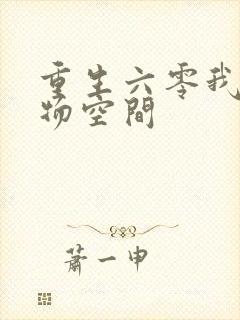 重生六零我
物空間
蕭一申